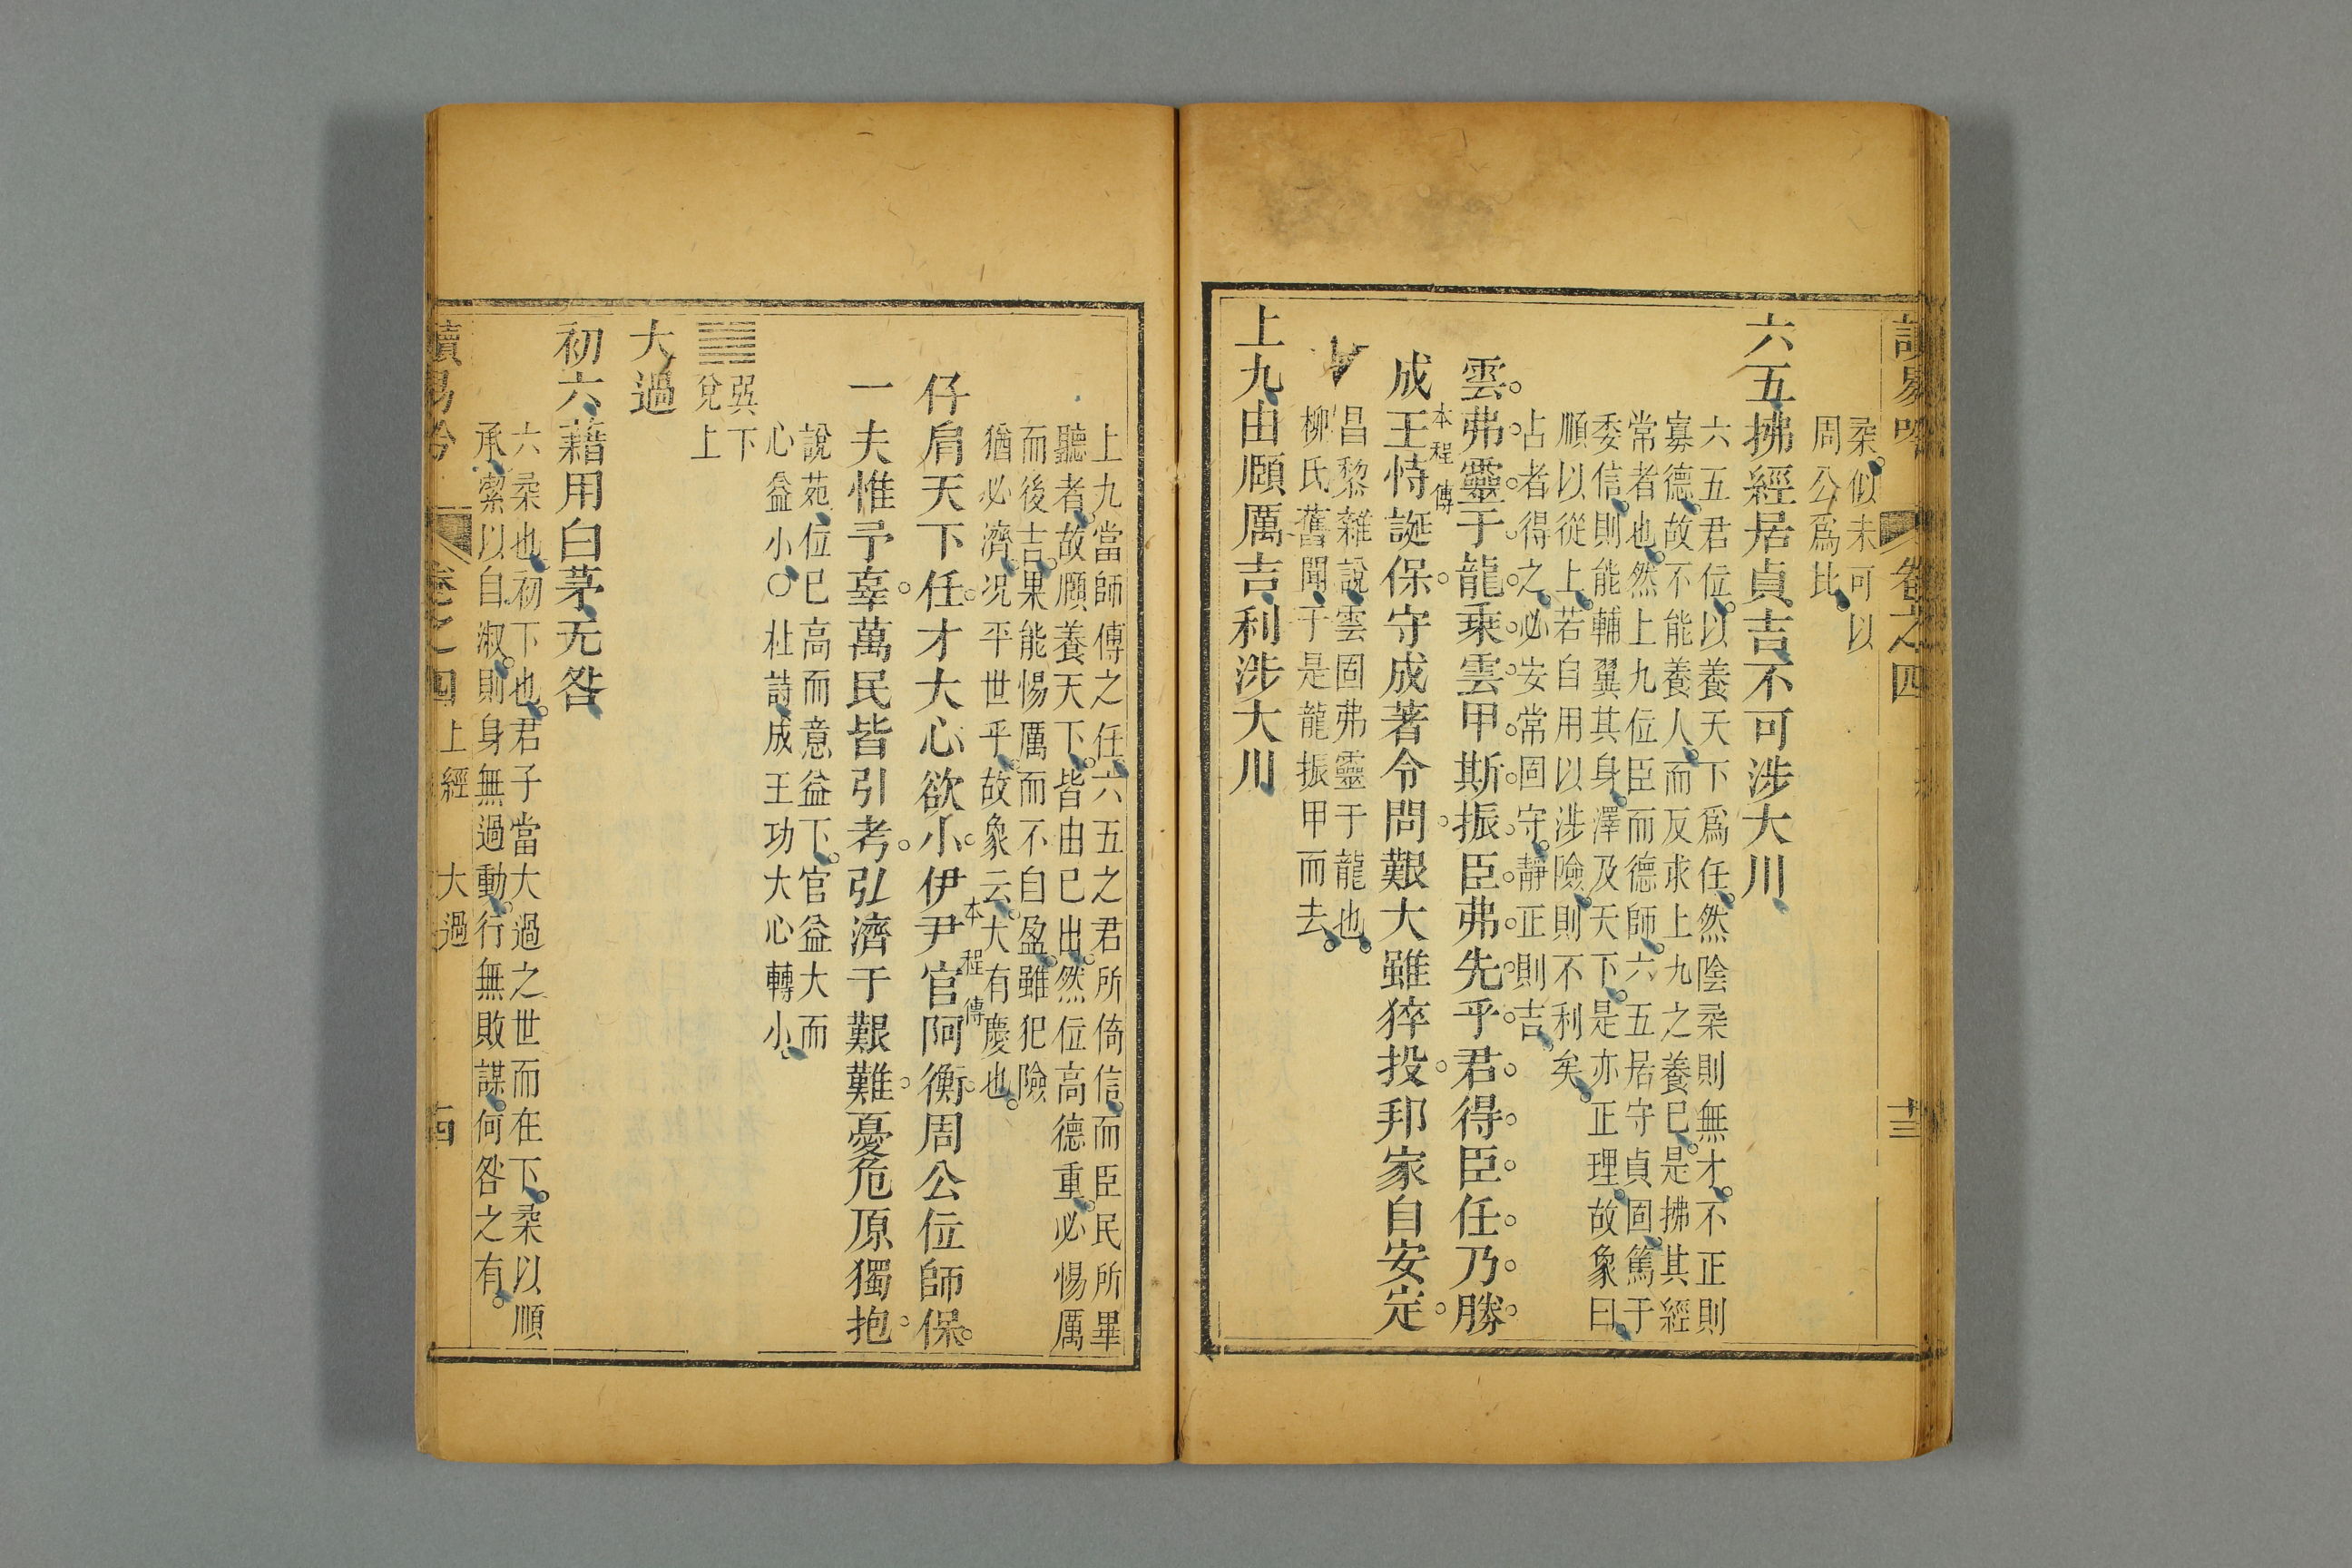 讀易吟
卷之四
柔似未可以
周公爲比
六五拂經居貞吉不可涉大川
六五君位以養天下爲任然陰柔則無才不正則
寡德故不能養人而反求上九之養已是拂其經
常者也然上九位臣而德師六五居守貞固篤于
委信則能輔翼其身澤及天下是亦正理故象曰
順以從上若自用以涉險則不利矣
占者得之必安常固守靜正則吉
雲弗靈于龍乘雲甲斯振臣弗先乎君得臣任乃勝
本程傳
成王恃誕保守成著令問艱大雖猝投邦家自安定
昌黎雜說雲固弗靈于龍也
柳氏舊聞于是龍振甲而去
上九由頤厲吉利涉大川
上九當師傅之任六五之君所倚信而臣民所畢
聽者故頤養天下皆由已出然位高德重必惕厲
而後吉果能惕厲而不自盈雖犯險
猶必濟况平世乎故象云大有慶也
本程傳
仔肩天下任才大心欲小伊尹官阿衡周公位師保
一夫惟予辜萬民皆引考弘濟于艱難憂危原獨抱
說苑位已高而意益下官益大而
心益小○杜詩成王功大心轉小
巽下
兌上
大過
初六藉用白茅无咎
六柔也初下也君子當大過之世而在下柔以順
承潔以自淑則身無過動行無敗謀何咎之有
讀易吟
卷之四
上經
大過